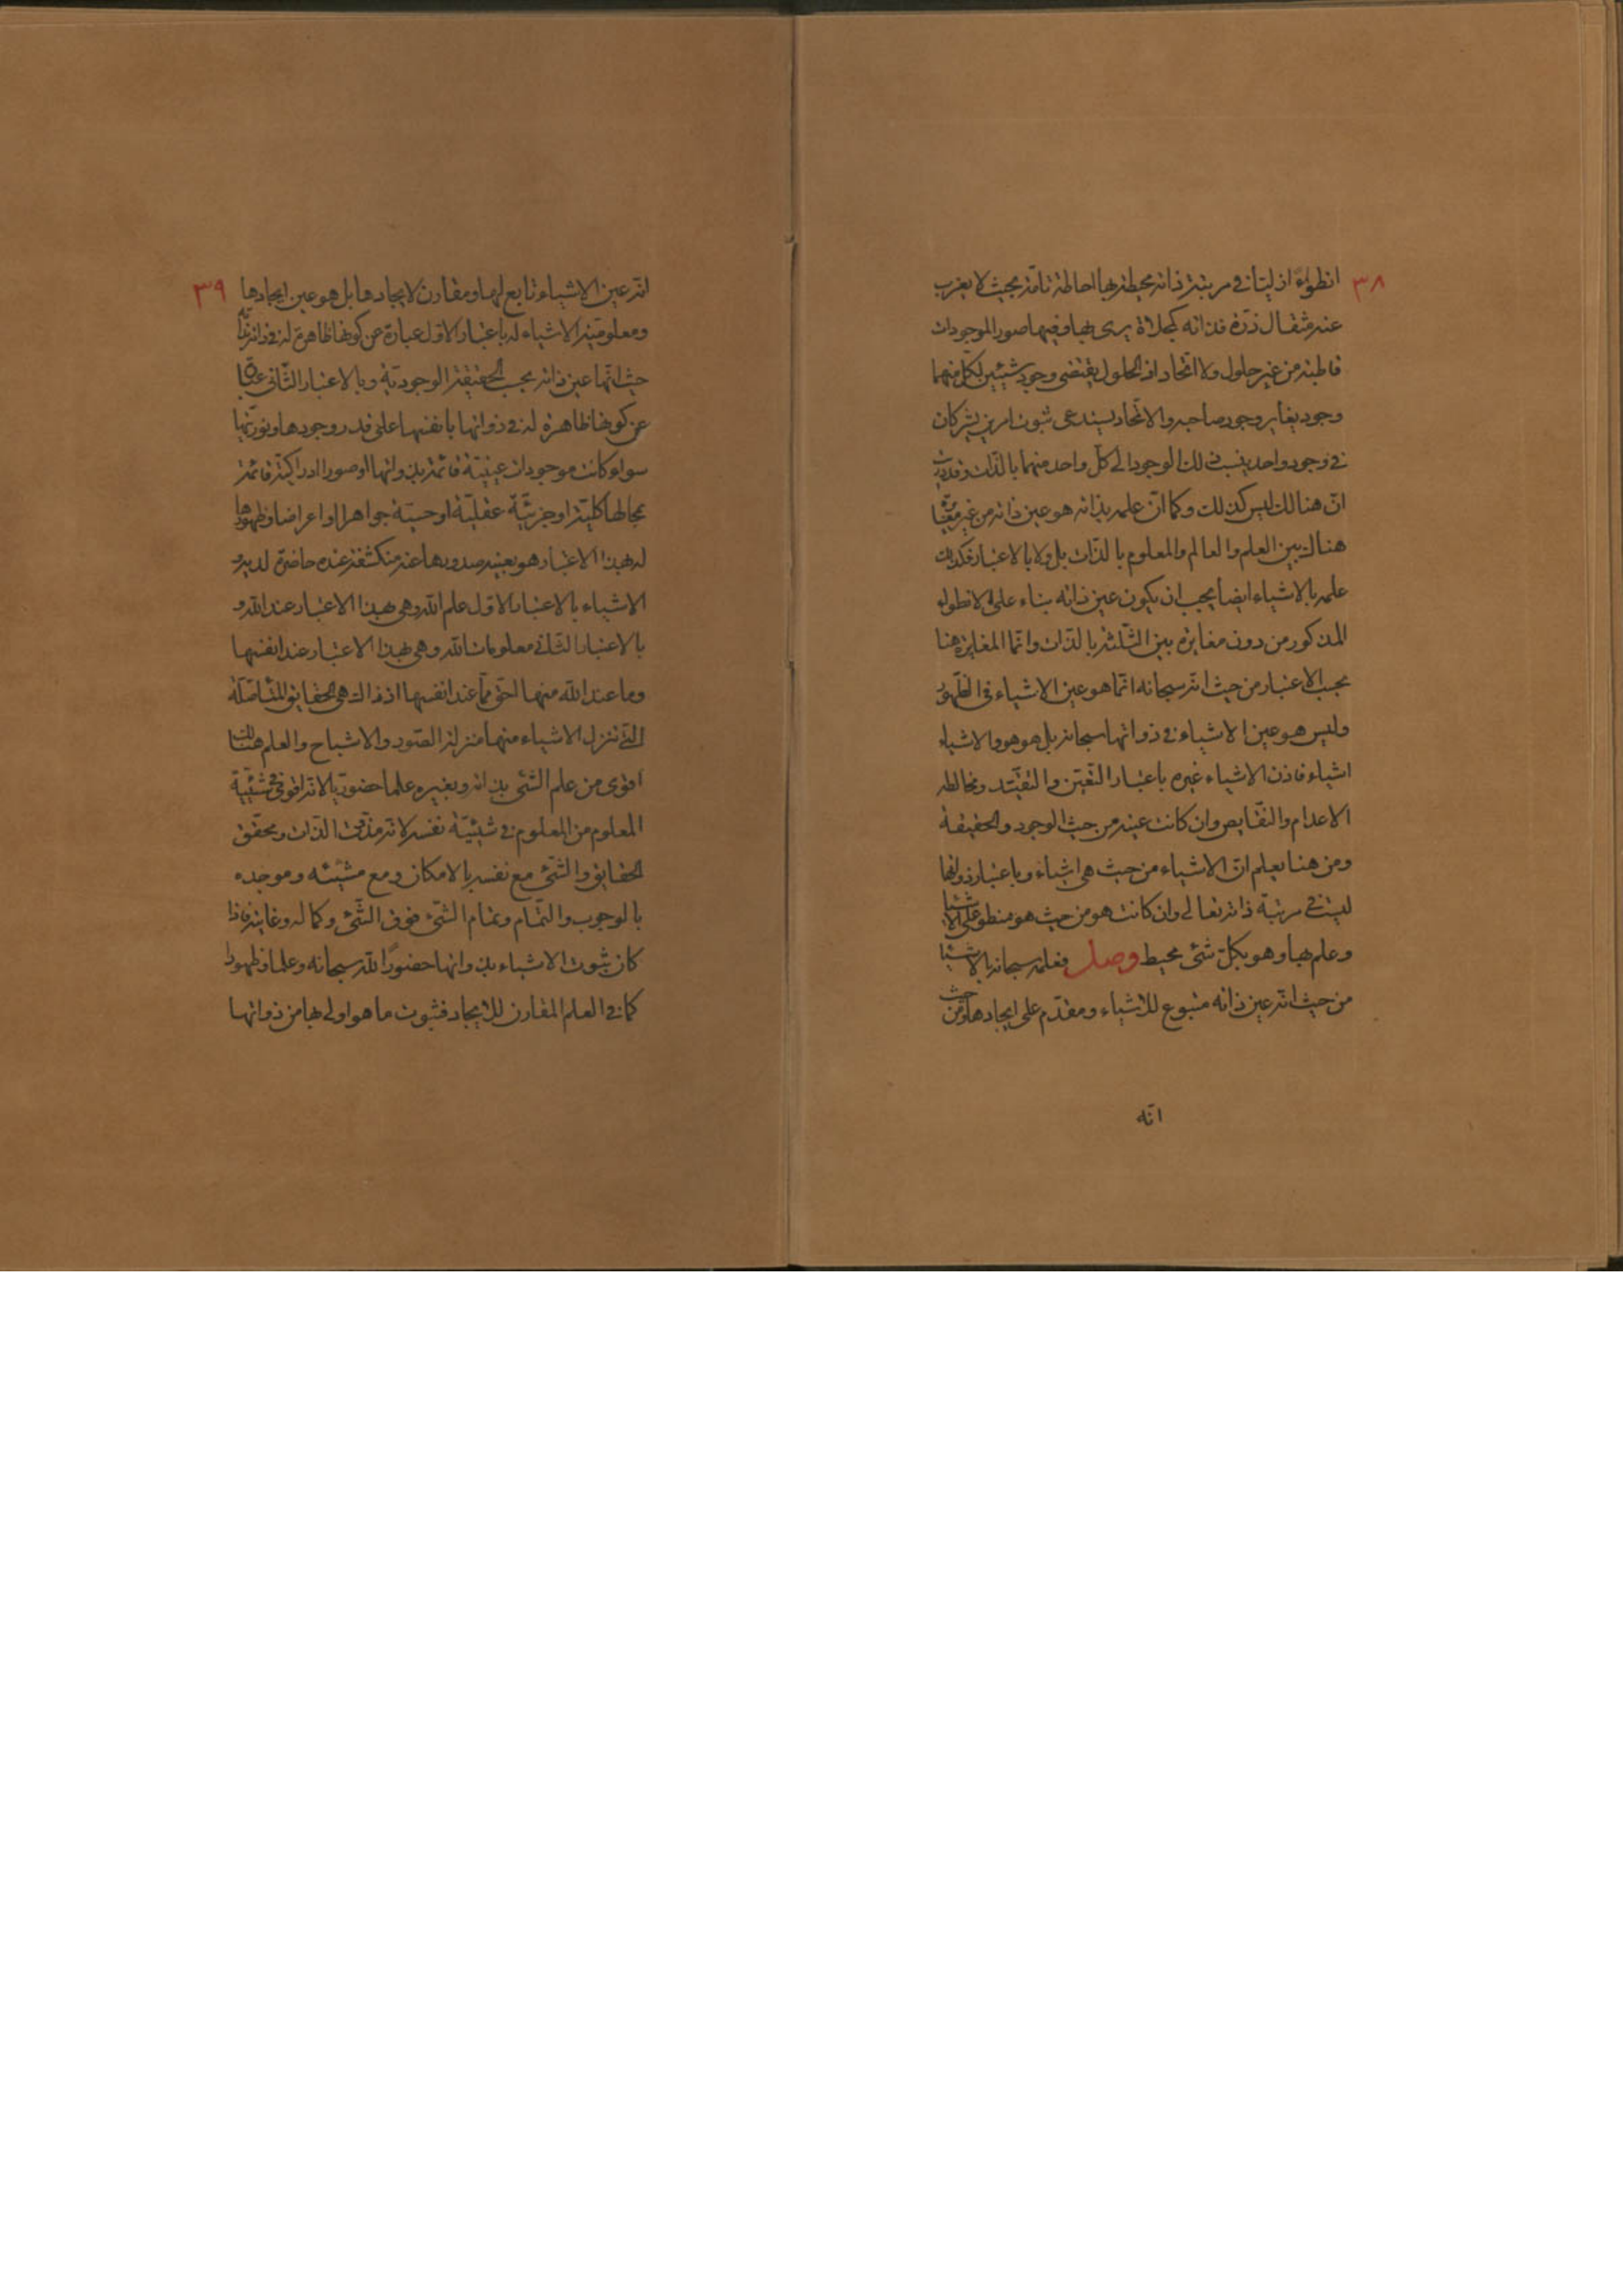 ٣٨
انطواءً ازليتا في مرتبة ذاته محيطة بها احاطة تامّة بحيث لا يعزب
عنه مثقال ذرّة فذاته كمجلاة يرى بها وفيها صور الموجودات
قاطبة من غير حلول ولا اتّحاد اذ الحلول يقتضى وجود شيئين لكلّ منهما
وجود يغاير وجود صاحبه والاتّحاد يستدعى ثبوت امرين يشتركان
في وجود واحد ينسب ذلك الوجود الى كلّ واحد منهما بالذّات وقد دريت
انّ هنالك ليس كذلك وكما انّ علمه بذاته هو عين ذاته من غير مغايرة
هناك بين العلم والعالم والمعلوم بالذّات بل ولا بالاعتبار فكذلك
علمه بالاشياء ايضا يجب ان يكون عين ذاته بناء على الانطواء
المذكور من دون مغايرة بين الثّلثة بالذّات وانّما المغايرة هنا
بحسب الاعتبار من حيث انّه سبحانه انّما هو عين الاشياء في الظّهور
وليس هو عين الاشياء في ذواتها سبحانه بل هو هو والاشياء
اشياء فاذن الاشياء غيره باعتبار التّعيّن والتقيّد ومخالطه
الاعدام والنّقايص وان كانت عينه من حيث الوجود والحقيقة
ومن هنا يعلم انّ الاشياء من حيث هى اشياء وباعتبار ذواتها
ليست في مرتبة ذاته تعالى وان كانت هو من حيث هو منطو على الاشياء
وعلم بها وهو بكلّ شئ محيط وصل فعلمه سبحانه بالاشياء
من حيث انّه عين ذاته متبوع للاشياء ومقدّم على ايجادها ومن حيث
انّه
٣٩
انّه عين الاشياء تابع لها ومقارن لايجادها بل هو عين ايجادها
ومعلوميّة الاشياء له باعتبار الاوّل عبارة عن كونها ظاهرة له في ذاته
حيث انّها عين ذاته بحسب الحقيقة الوجوديّة وبالاعتبار الثّانى عبارة
عن كونها ظاهرة له في ذواتها بانفسها على قدر وجودها ونوريّتها
سواء كانت موجودات عينيّة قائمة بذواتها او صورا ادراكيّة قائمة
بمحالها كليّة او جزئيّة عقليّة او حسيّة جواهرا او اعراضا وظهورها
له بهذا الاعتبار هو بعينه صدورها عنه منكشفة عنده حاضرة لديه و
الاشياء بالاعتبار الاوّل علم الله وهى بهذا الاعتبار عند الله و
بالاعتبار الثّانى معلومات الله وهى بهذا الاعتبار عند انفسها
وما عند الله منها احقّ ممّا عند انفسها اذ ذاك هى الحقايق المتأصّلة
الّتى تنزل الاشياء منها منزلة الصّور والاشباح والعلم هنالك
اقوى من علم الشّئ بذاته وبغيره علما حضوريّا لانّه اقوى في شيئيّة
المعلوم من المعلوم في شيئيّة نفسه لانّه مذوّت الذّات ومحقّق
الحقايق والشّئ مع نفسه بالامكان ومع مشيّئه وموجده
بالوجوب والتّمام وتمام الشّئ فوق الشّئ وكماله وغايته فاذا
كان ثبوت الاشياء بذواتها حضورا لله سبحانه وعلما وظهورا
كما في العلم المقارن للايجاد فثبوت ما هو اولى بها من ذواتها